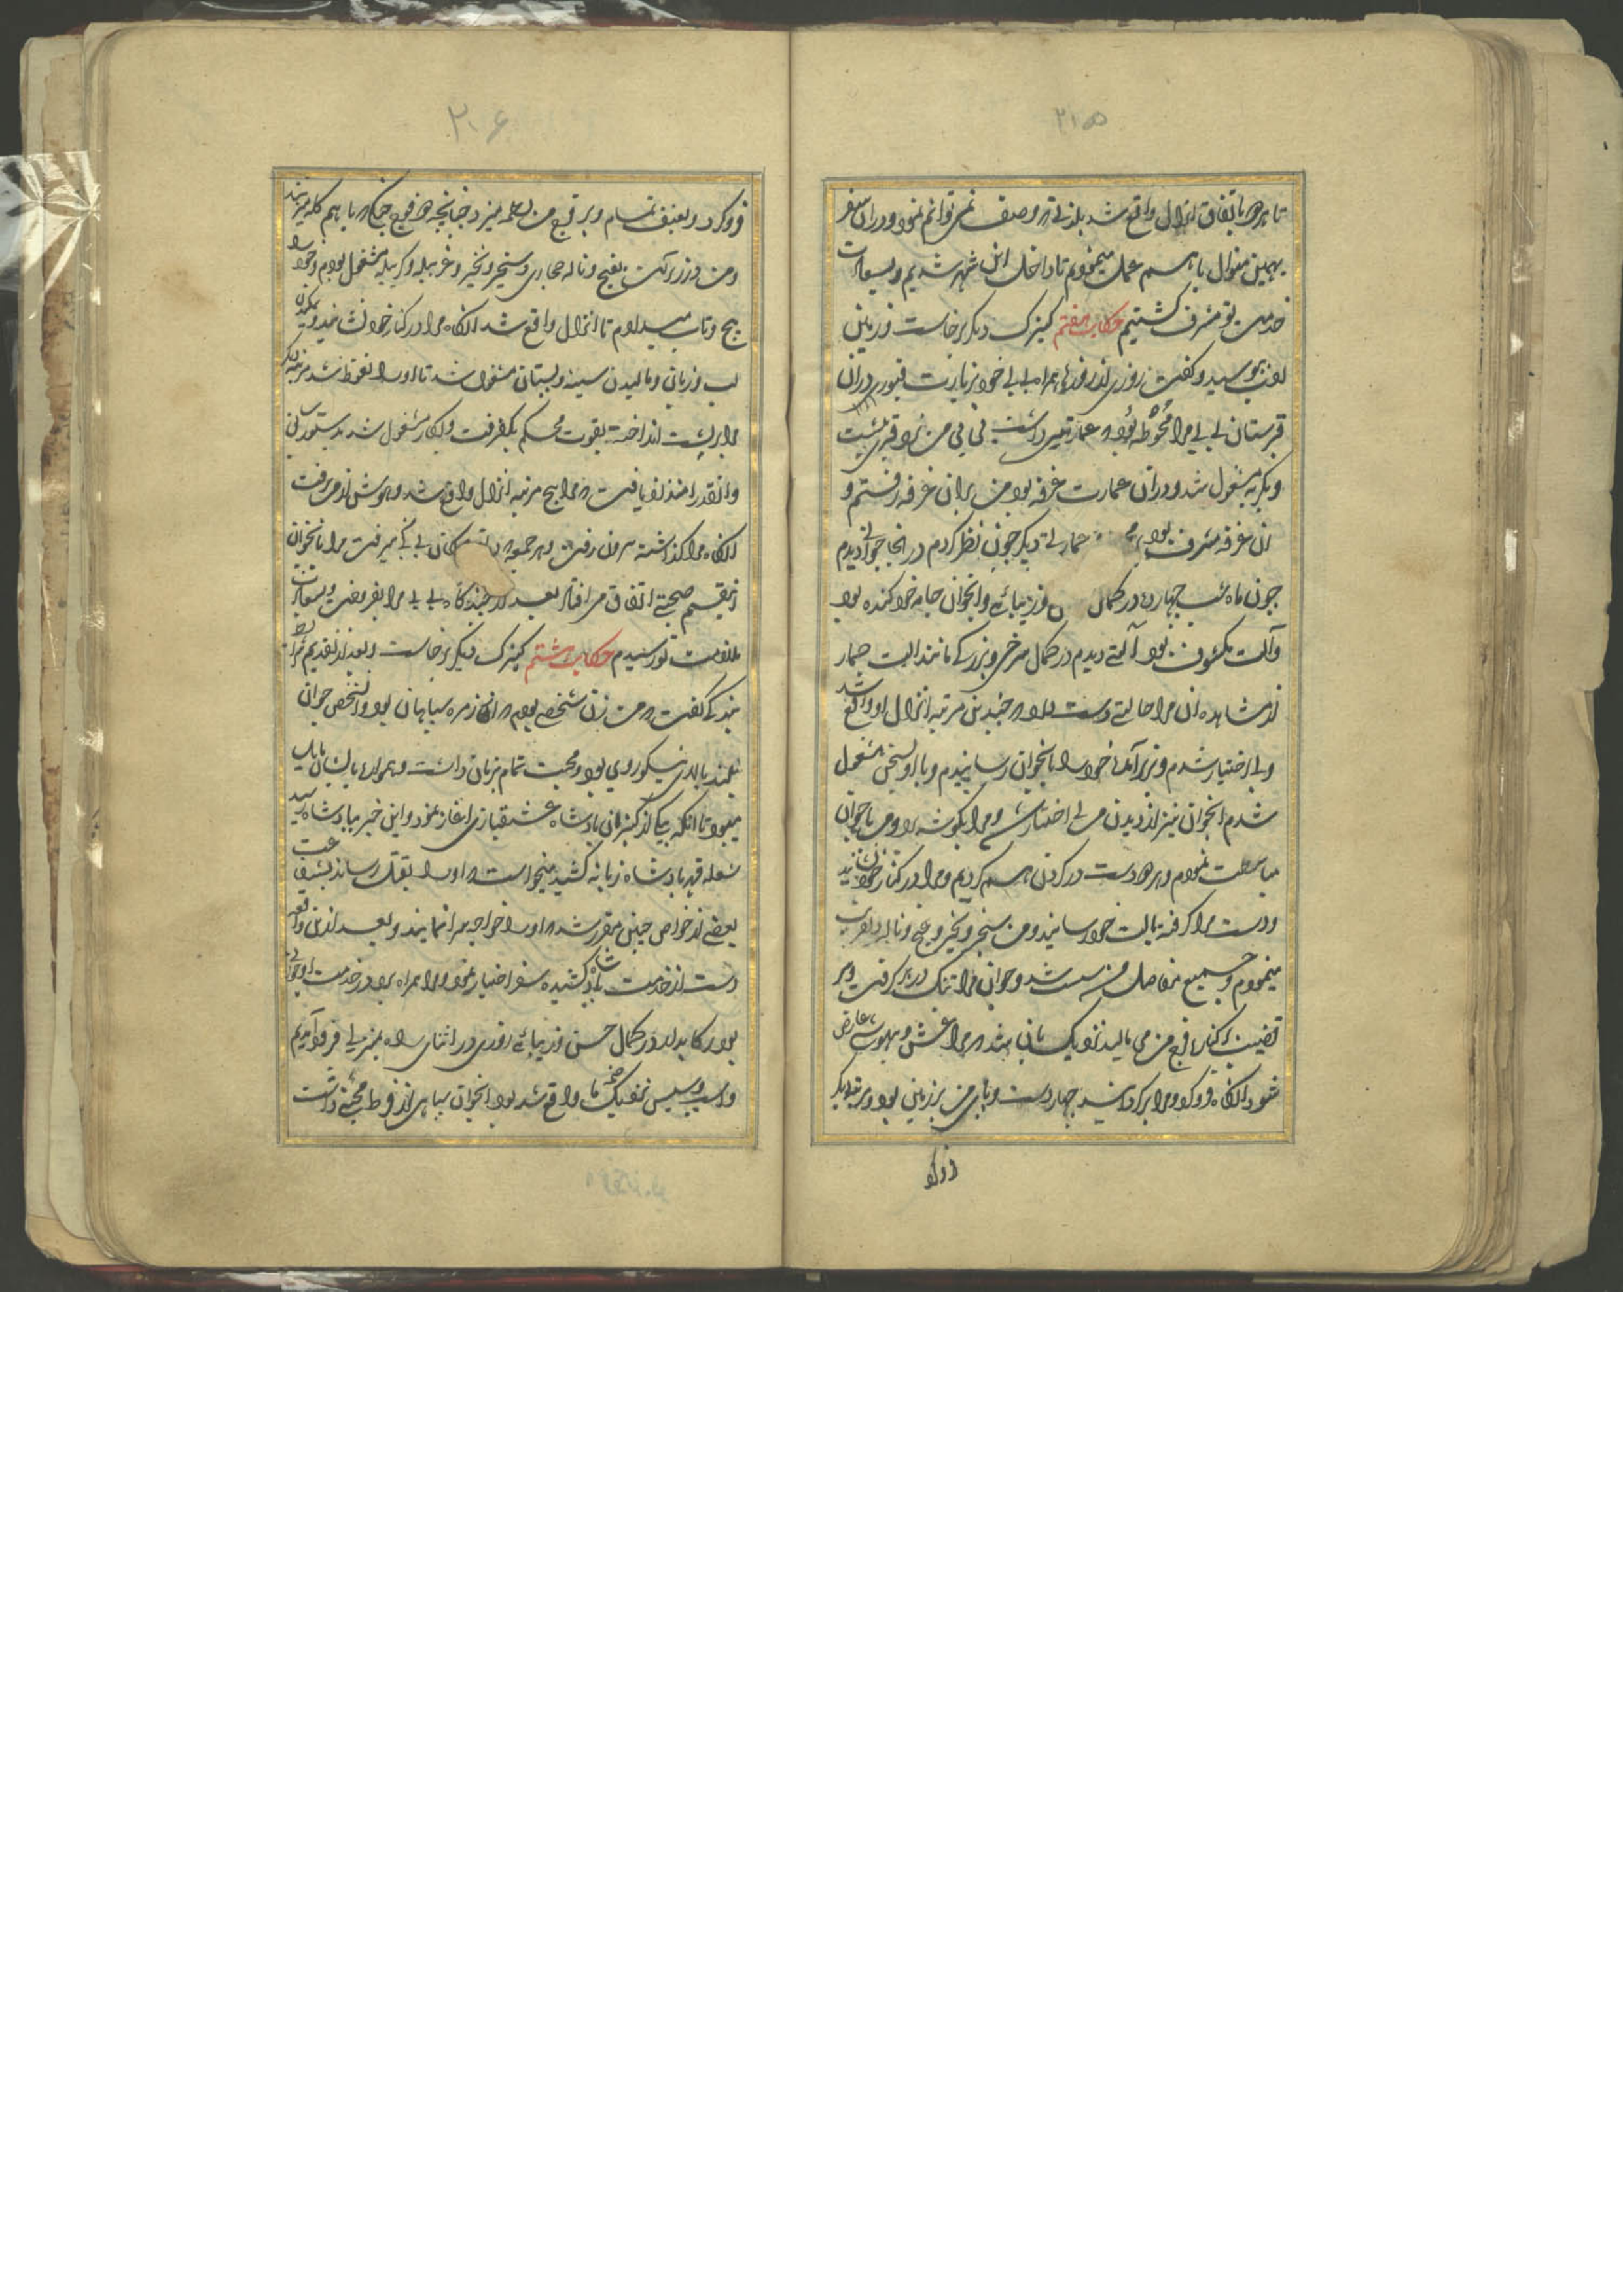 ۲۱۵
تا هر دو باتفاق انزال واقع شد بلذتی که وصف نمی توانم نمود و در ان سفر
بهمین منوال با هم عمل مینمودیم تا داخل این شهر شدیم و بسعادت
خدمت تو مشرف گشتیم حکایت هفتم کنیزک دیگر برخاست و زمین
بوسید و گفت روزی از روزها همراه بی بی خود بزیارت قبور در ان
قبرستان بی بی مرا محوطه بود که عمارتی داشت بی بی من نزد قبر نشست
و بگریه مشغول شد و در ان عمارت غرفه بود من بران غرفه رفتم و
ان غرفه مشرف بود عمارتی دیگر چون نظر کردم در انجا جوانی دیدم
چون ماه شب چهارده در کمال و زیبائی و انجوان جامه خود کنده بود
و آلت مکشوف بود آلتی دیدم در کمال سرخی و بزرگی مانند الت حمار
از مشاهده ان مرا حالتی دست داد که چندین مرتبه انزال واقع شد
و بی اختیار شدم و بزیر آمده خود را بانجوان رسانیدم و با او بسخن مشغول
شدم انجوان نیز از دیدن من بی اختیار شد و مرا بگوشه برد و من با جوان
مباسطت نمودم و هر دو دست در گردن هم کردیم و مرا در کنار خود نشانید
و دست مرا گرفته بالت خود رسانید و من و نخیر و غنج و ناله
مینمودم و جمیع مفاصل من سست شد و جوان مرا تنگ در بر گرفت و سر
قضیب را کنار فرج من می مالید نزدیک بان شد که مرا غش و بیهوشی عارض
شود انگاه فرو کرد و مرا برگردانید چهار دست و پای من بر زمین بود و مرتبه دیگر
فرو کرد
۲۰۶
فرو کرد و بعنف تمام و بر فرج من حمله میزد چنانچه دو قوچ جنگی با هم کله میزنند
و من در زیر آلت بغنج و ناله و نخیر و غربیله و کربیله مشغول بودم و خود را
پیچ و تاب میدادم تا انزال واقع شد انگاه مرا در کنار خود نشانید و بمکیدن
لب و زبان و مالیدن سینه و پستان مشغول شد تا او را نعوظ شد مرتبه دیگر
مرا بر پشت انداخته بقوت محکم بگرفت و بکار مشغول شد بدستور سابق
و انقدر امتداد یافت که مرا پنج مرتبه انزال واقع شد و هوش از من برفت
انگاه مرا گذاشته بیرون رفت و هر جمعه که بی بی میرفت مرا با انجوان
ازینقسم صحبتی اتفاق می افتاد بعد از چندگاه بی بی مرا بفروخت و بسعادت
ملازمت تو رسیدم حکایت هشتم کنیزک دیگر برخاست و بعد از تقدیم شرایط
بندگی گفت که من زن شخصی بودم که از زمره سپاهیان بود و انشخص جوان
بلند بالای نیکو روی بود و محبت تمام بزنان داشت و همواره با ایشان مایل
میبود تا انکه بیکی از کنیزان پادشاه عشقبازی اغاز نمود و این خبر بپادشاه رسید
شعله قهر پادشاه زبانه کشید میخواست که او را بقتل رساند بشفاعت
بعضی از خواص چنین مقرر شد که او را خواجه سرا نمایند و بعد از این واقعه
دست از خدمت پادشاه کشیده سفر اختیار نمود و مرا همراه برد در خدمت او جوانی
بود رکابدار در کمال حسن و زیبائی روزی در اثنای راه بمنزلی فرود آمدیم
و اسب و سیس نزدیک خیمه ما واقع شد بود انجوان سپاهی از فرط محبتی داشت